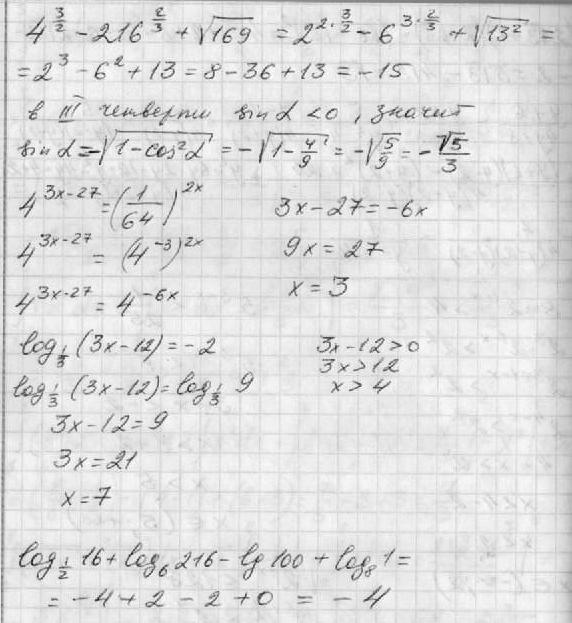 4^(3/2) - 216^(2/3) + √169 = 2^(2·3/2) - 6^(3·2/3) + √(13²) =
= 2³ - 6² + 13 = 8 - 36 + 13 = -15
в III четверти sin α < 0, значит
sin α = -√(1-cos²α) = -√(1-4/9) = -√(5/9) = -√5/3
4^(3x-27) = (1/64)^(2x)
4^(3x-27) = (4^(-3))^(2x)
4^(3x-27) = 4^(-6x)
3x-27 = -6x
9x = 27
x = 3
log_(1/3) (3x-12) = -2
log_(1/3) (3x-12) = log_(1/3) 9
3x-12 = 9
3x = 21
x = 7
3x-12 > 0
3x > 12
x > 4
log_(1/2) 16 + log_6 216 - lg 100 + log_8 1 =
= -4 + 2 - 2 + 0 = -4